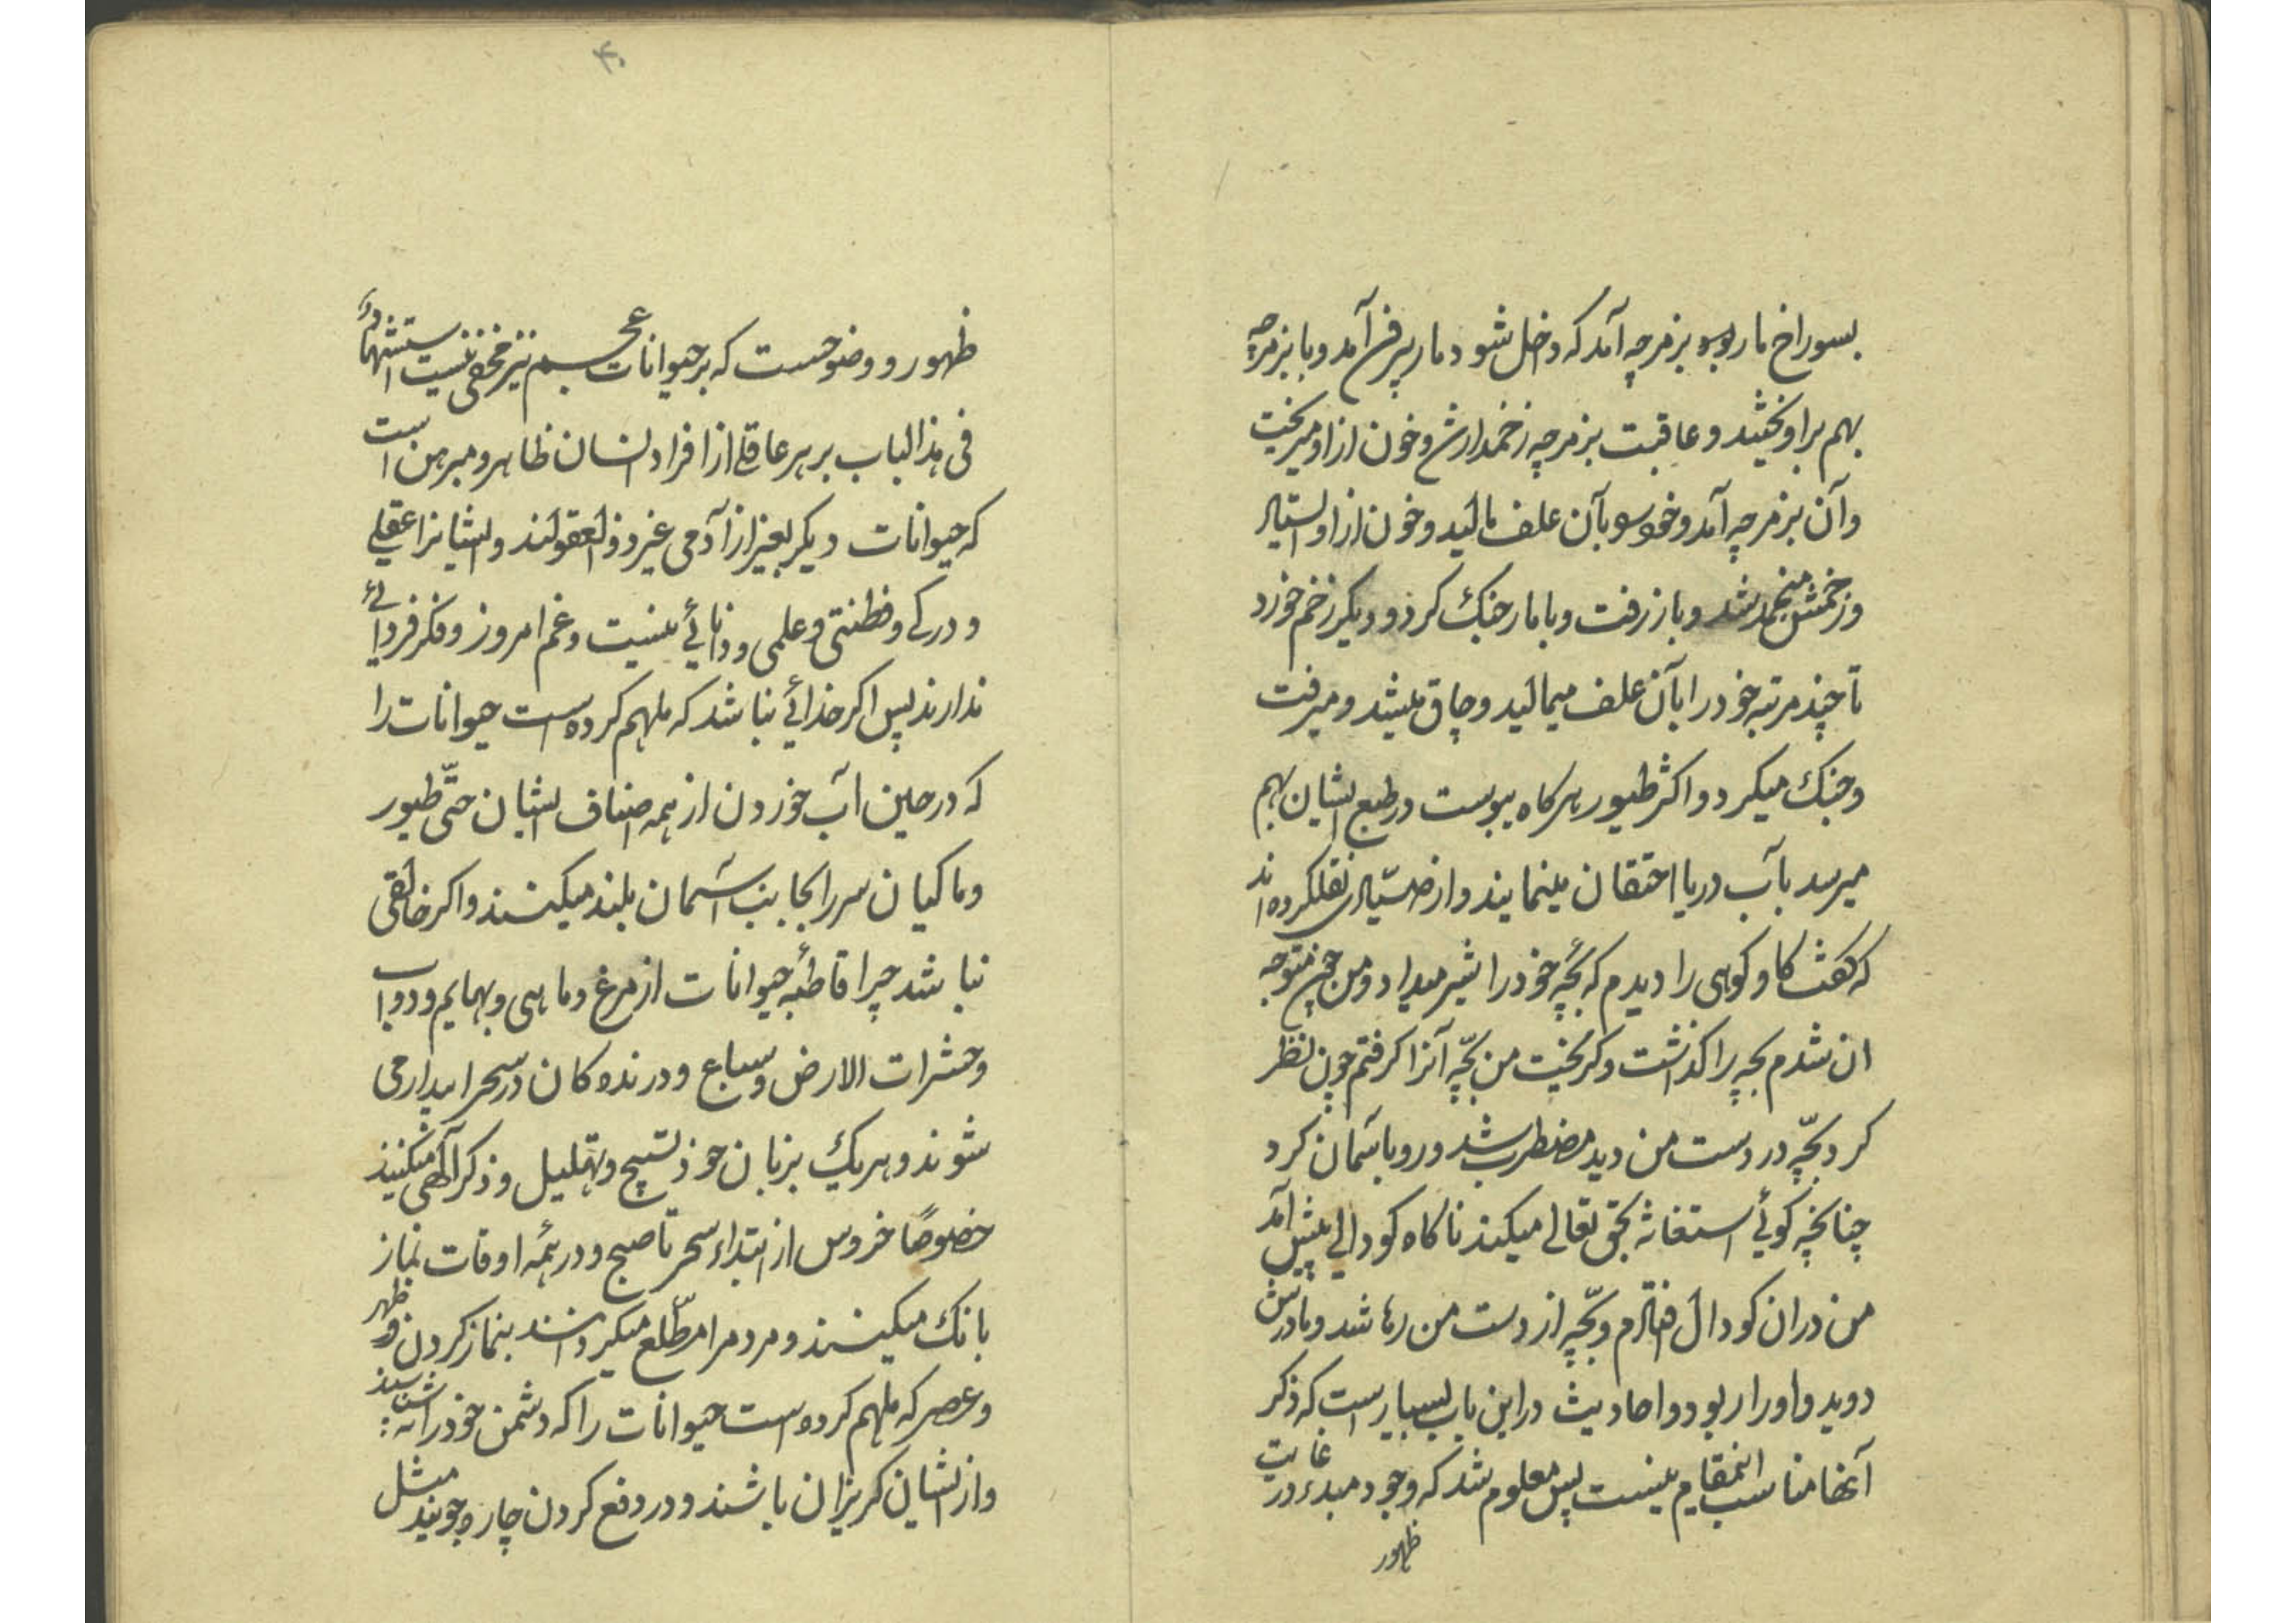 بسوراخ مار بزمرچه آمد که داخل شود مار بیرون آمد و با بزمرچه
بهم براویختند و عاقبت بزمرچه زخمدار شد و خون از او میریخت
و آن بزمرچه آمد و خود بآن علف مالید و خون از او ایستاد
و زخمش منجمد شد و باز رفت و با مار جنک کرد و دیکر زخم خورد
تا چند مرتبه خود را بآن علف میمالید و چاق میشد و میرفت
و جنک میکرد و اکثر طیور هرکاه یبوست در طبع ایشان بهم
میرسد بآب دریا احتقان مینمایند و از صیادی نقلکرده اند
که کفت کاو کوهی را دیدم که بچه خود را شیر میداد و من چون متوجه
ان شدم بچه را کذاشت و کریخت من بچه آنرا کرفتم چون نظر
کرد بچه در دست من دید مضطرب شد و رو باسمان کرد
چنانچه کوئی استغاثه بحق تعالی میکند ناکاه کودالی پیش آمد
من دران کودال افتادم و بچه از دست من رها شد و مادرش
دوید و او را ربود و احادیث در این باب بسیار است که ذکر
آنها مناسب اینمقام نیست پس معلوم شد که وجود مبدء در غایت
ظهور
۴۰
ظهور و وضوحست که بر حیوانات عجم نیز مخفی نیست استشهاد
فی هذا الباب بر هر عاقلی از افراد انسان ظاهر و مبرهن است
که حیوانات دیکر بغیر از آدمی غیر ذو العقولند و ایشانرا عقلی
و درکی و فطنتی و علمی و دانائی نیست و غم امروز و فکر فردائی
ندارند پس اکر خدائی نباشد که ملهم کرده است حیوانات را
که در حین آب خوردن از همه اصناف ایشان حتّی طیور
و ماکیان سر را بجانب آسمان بلند میکنند و اکر خالقی
نباشد چرا قاطبه حیوانات از مرغ و ماهی و بهایم و دواب
و حشرات الارض و سباع و درنده کان در سحر بیدار می
شوند و هر یک بزبان خود تسبیح و تهلیل و ذکر آلهی میکنند
خصوصًا خروس از ابتداء سحر تا صبح و در همه اوقات نماز
بانک میکنند و مردم را مطّلع میکردانند بنماز کردن و ظهر
و عصر که ملهم کرده است حیوانات را که دشمن خود را بشناسند
و از ایشان کریزان باشند و در دفع کردن چاره جویند مثل